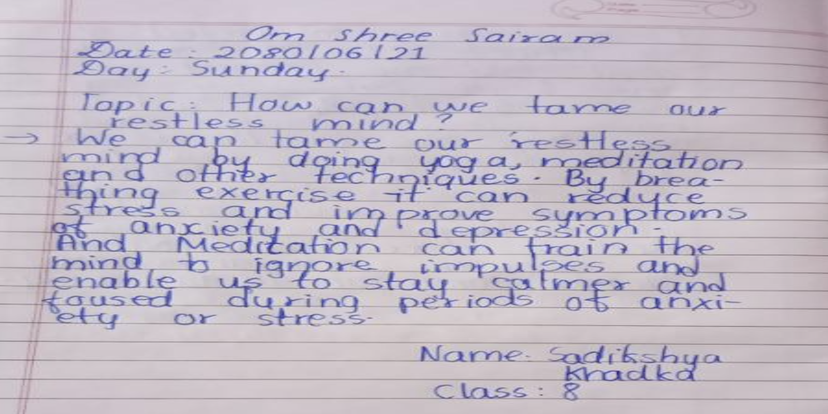 Om Shree Sairam
Date: 2080/06/21
Day: Sunday.
Topic: How can we tame our
restless mind?
→ We can tame our restless
mind by doing yoga, meditation
and other techniques. By brea-
thing exercise it can reduce
stress and improve symptoms
of anxiety and depression.
And Meditation can train the
mind to ignore impulses and
enable us to stay calmer and
foused during periods of anxi-
ety or stress.
Name: Sadikshya
Khadka
Class: 8